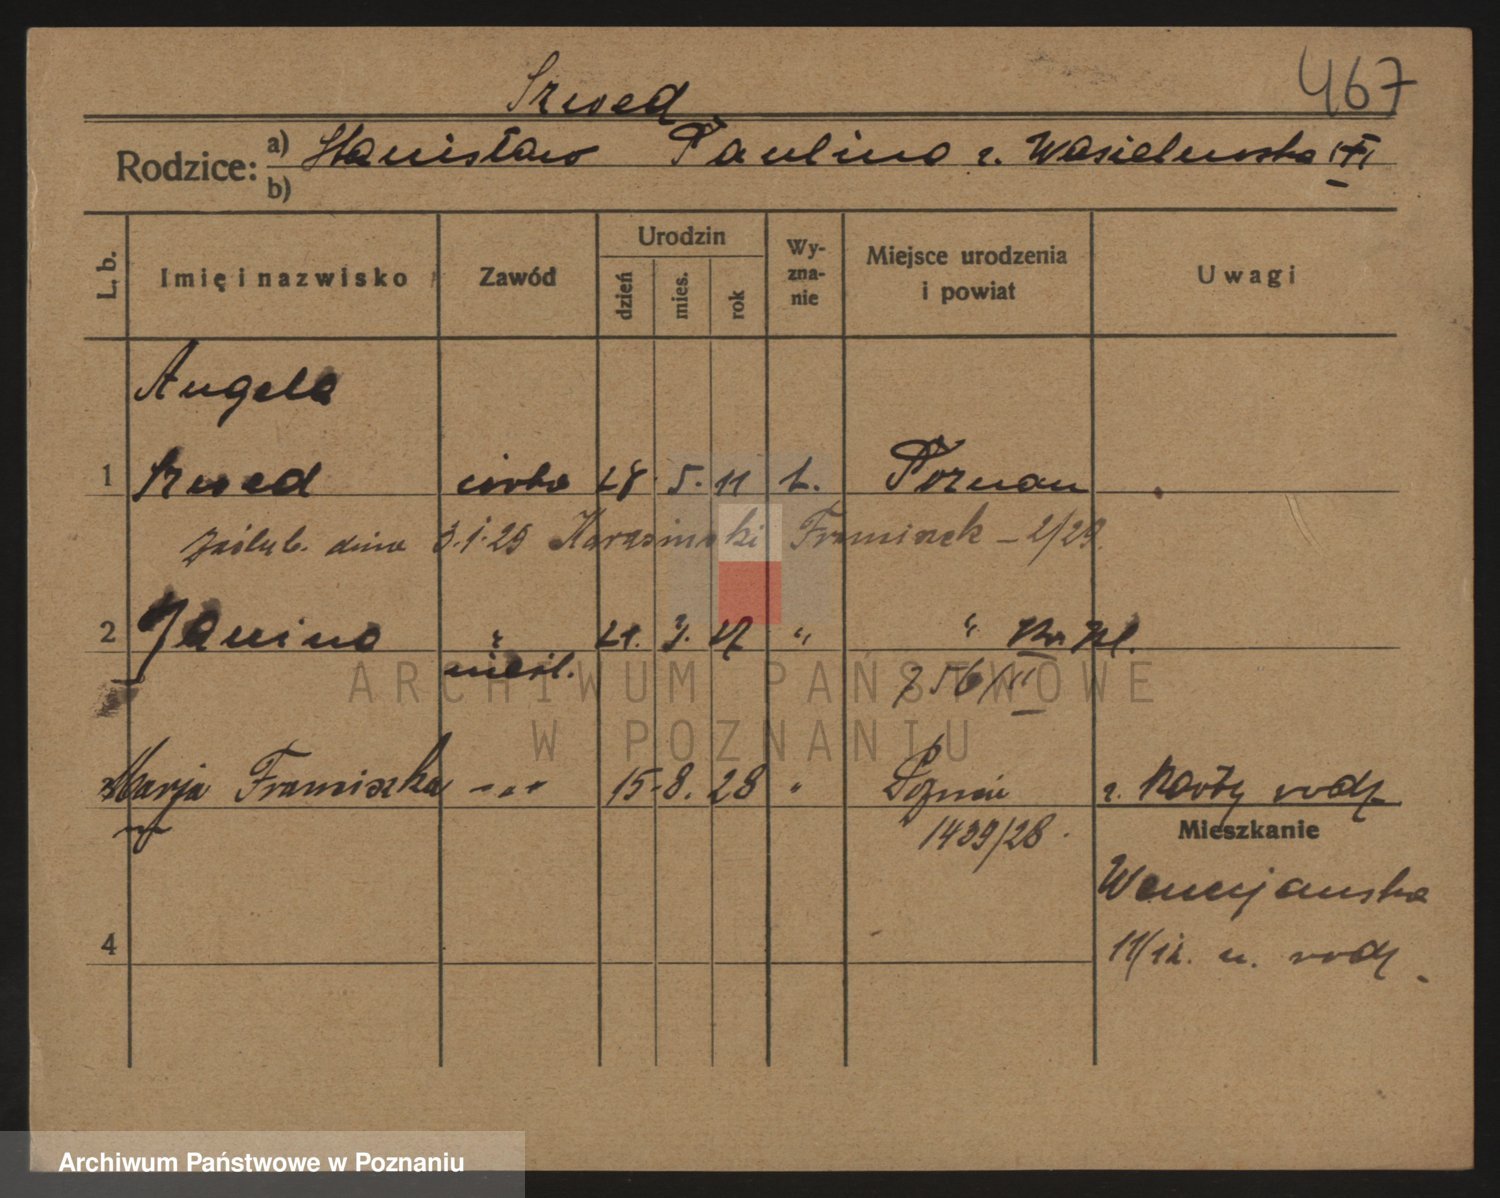 467
Szwed
Rodzice: a) Stanisław Paulina z. Wasielewska
b)
L. b.
Imię i nazwisko
Zawód
Urodzin
dzień
mies.
rok
Wy-
zna-
nie
Miejsce urodzenia
i powiat
Uwagi
Angela
1 Szwed córka 28. 5. 11 k. Poznań
zaślub. dnia 3.1.29 Karasiński Franciszek - 2/29.
2 Janina " 21. 3. 17 " "
nieśl. 756/II
Marja Franciszka " " " 15. 8. 28 " Poznań z karty rodz.
1439/28.
Mieszkanie
Wenecjańska
4
11/12. u. rodz.
ARCHIWUM PAŃSTWOWE
W POZNANIU
Archiwum Państwowe w Poznaniu